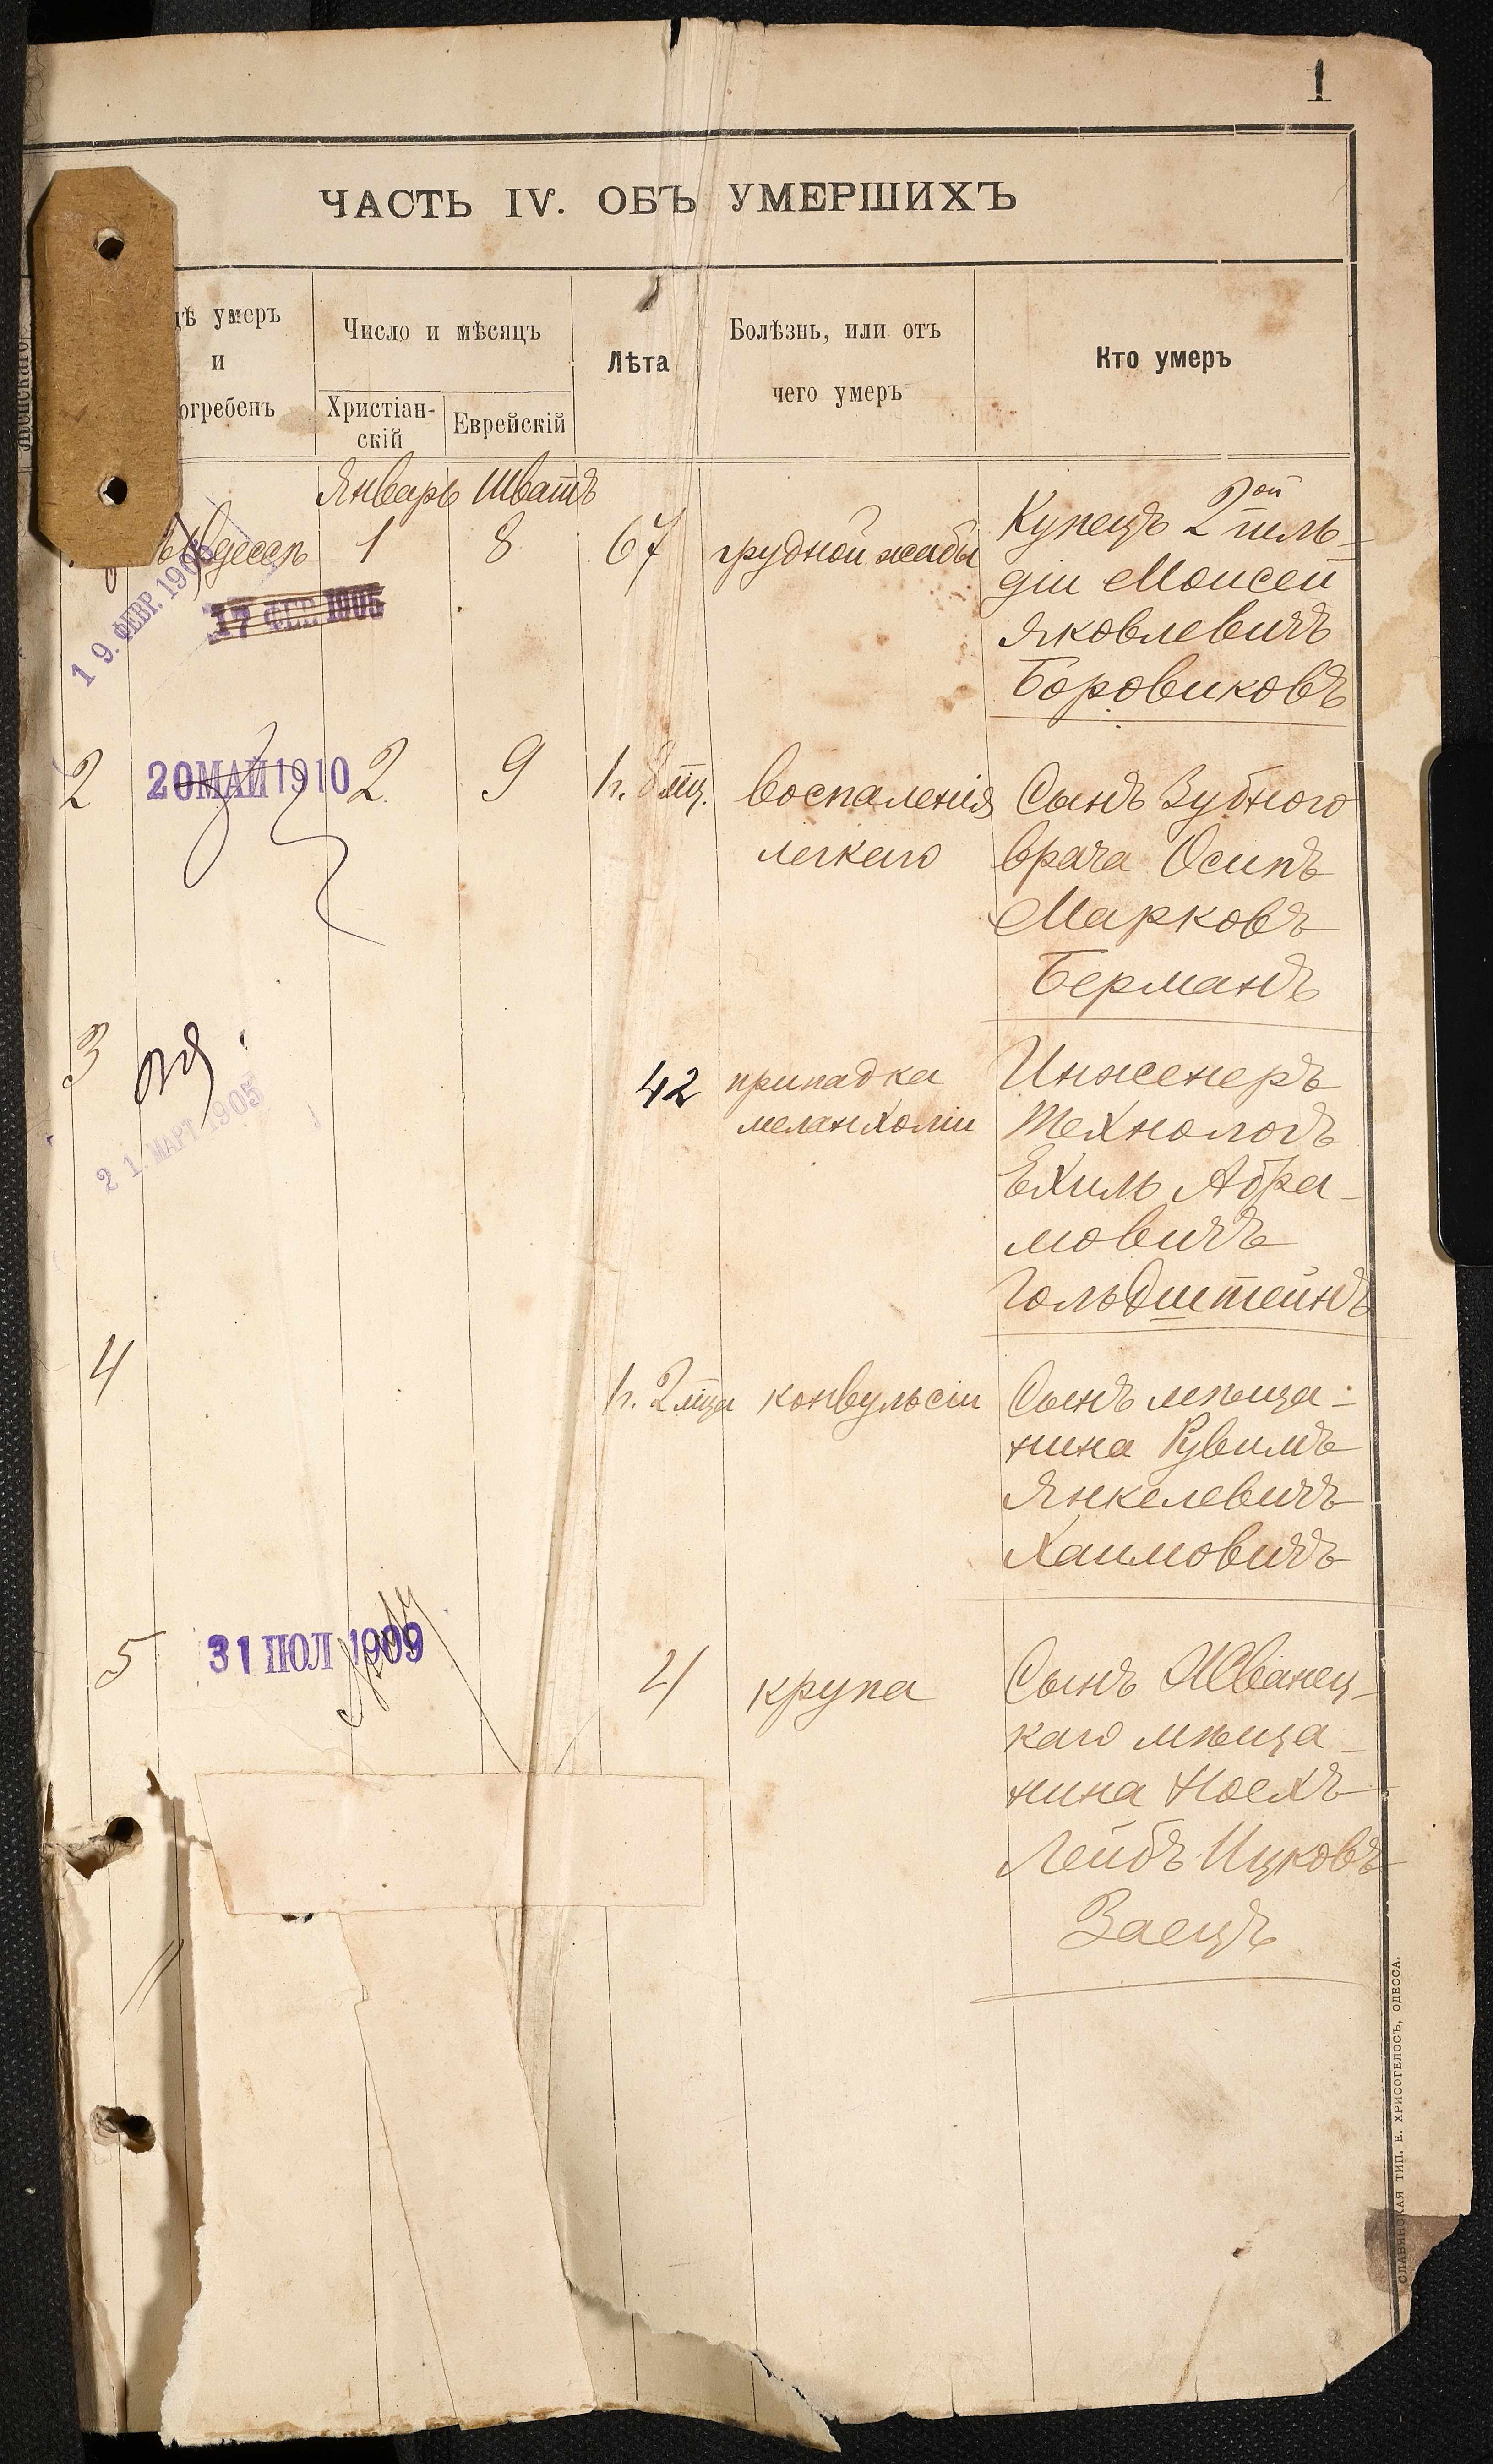 1
ЧАСТЬ IV. ОБЪ УМЕРШИХЪ
дѣ умеръ
и
огребенъ
Число и мѣсяцъ
Христіан-
скій
Еврейскій
Лѣта
Болѣзнь, или отъ
чего умеръ
Кто умеръ
Январь Шватъ
Одессѣ 1 8 67 грудной жабы
Купецъ 2ой гиль-
діи Моисей
Яковлевичъ
Боровиковъ
19. ФЕВР. 1905
17 ФЕВ 1905
2 20 МАЙ 1910 2 9 1 г. 8 мц. воспаленія
легкаго
Сынъ Зубного
врача Осипъ
Марковъ
Берманъ
3
21. МАРТ. 1905
42 припадка
меланхоліи
Инженеръ
Технологъ
Ехиль Абра-
мовичъ
Гольдштейнъ
4 1 г. 2 мца конвульсіи
Сынъ мѣща-
нина Рувимъ
Янкелевичъ
Хаимовичъ
5 31 ІЮЛ 1909 4 крупа
Сынъ Жванец-
каго мѣща-
нина Ноехъ
Лейбъ Ицковъ
Заецъ
СЛАВЯНСКАЯ ТИП. Е. ХРИСОГЕЛОСЪ, ОДЕССА.